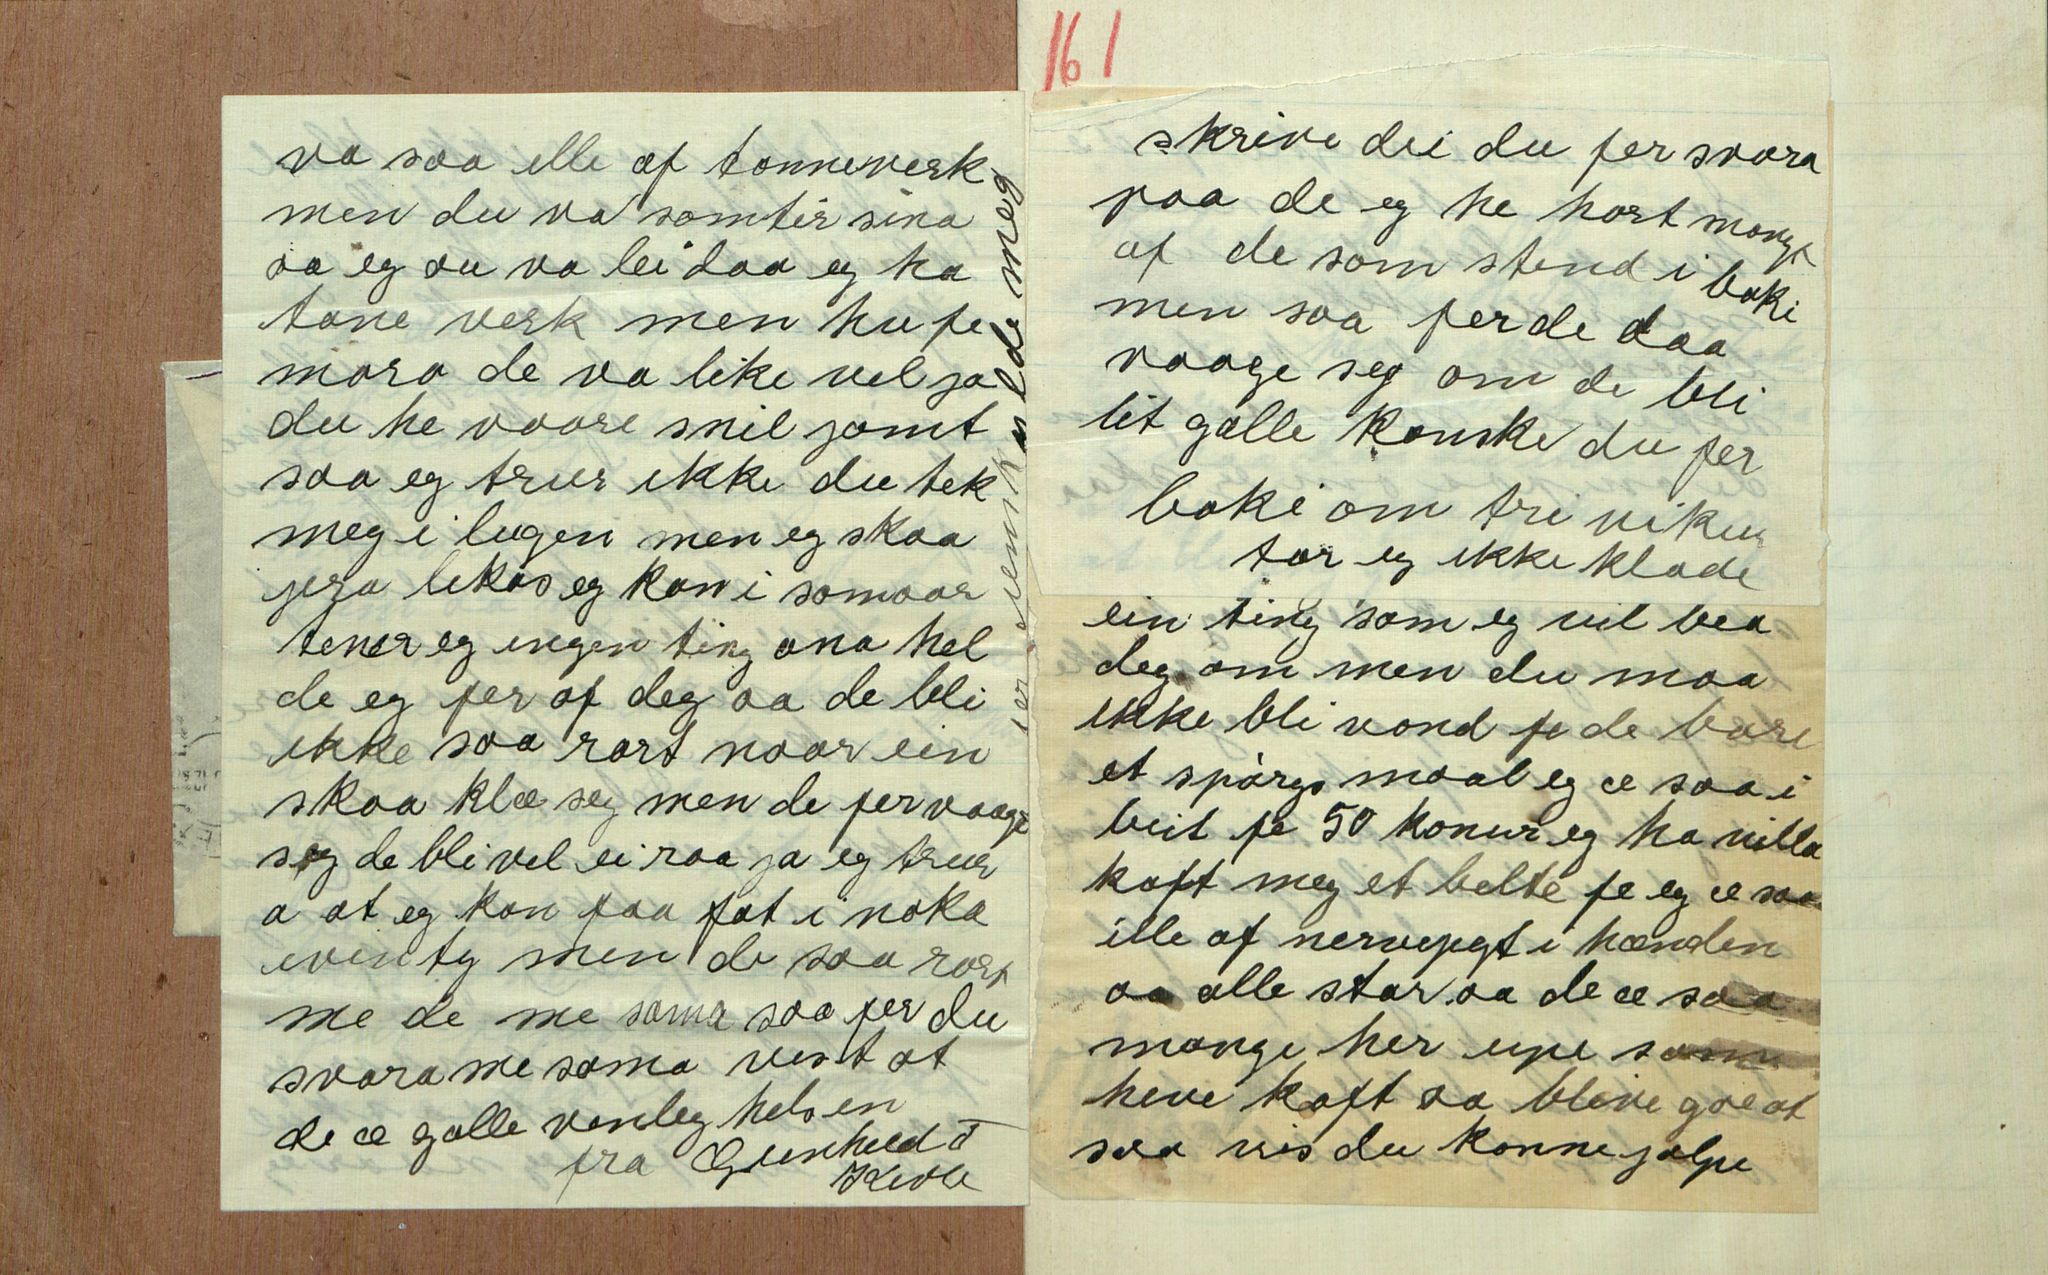 va saa ille af tonneverk
men du va somtir sina
aa eg au va lei daa eg ha
tane verk men hu fe
moro de va like vel ja
du he voore snil jamt
saa eg trur ikke du tek
meg i lugen men eg skaa
jera likas eg kan i somaar
tener eg ingen ting ana hel
de eg fer af deg aa de bli
ikke saa rart naar ein
skaa klæ seg men de fer vaage
seg de bli vel ei raa ja eg trur
a at eg kan faa fat i noka
eventy men de saa rart
me de me sama saa fer du
svara me sama vist at
de æ galle venleg helsen
fra Gunheild T
Kivle
meg
161
skrive dei du fer svara
paa de eg he hort mangt
af de som stend i boki
men saa fer de daa
vaage seg om de bli
lit galle Kanske du fer
boki om tri vikur
tor eg ikke klade
ein ting som eg vil bea
deg om men du maa
ikke bli vond fe de bare
et spörgs maal eg æ saa i
beit fe 50 konur eg ha villa
kaft meg et belte fe eg æ saa
ille af nervegygt i hænden
aa alle star aa de æ saa
mange her upe som
heve kaft aa blive goe at
saa vis du konne jalpe